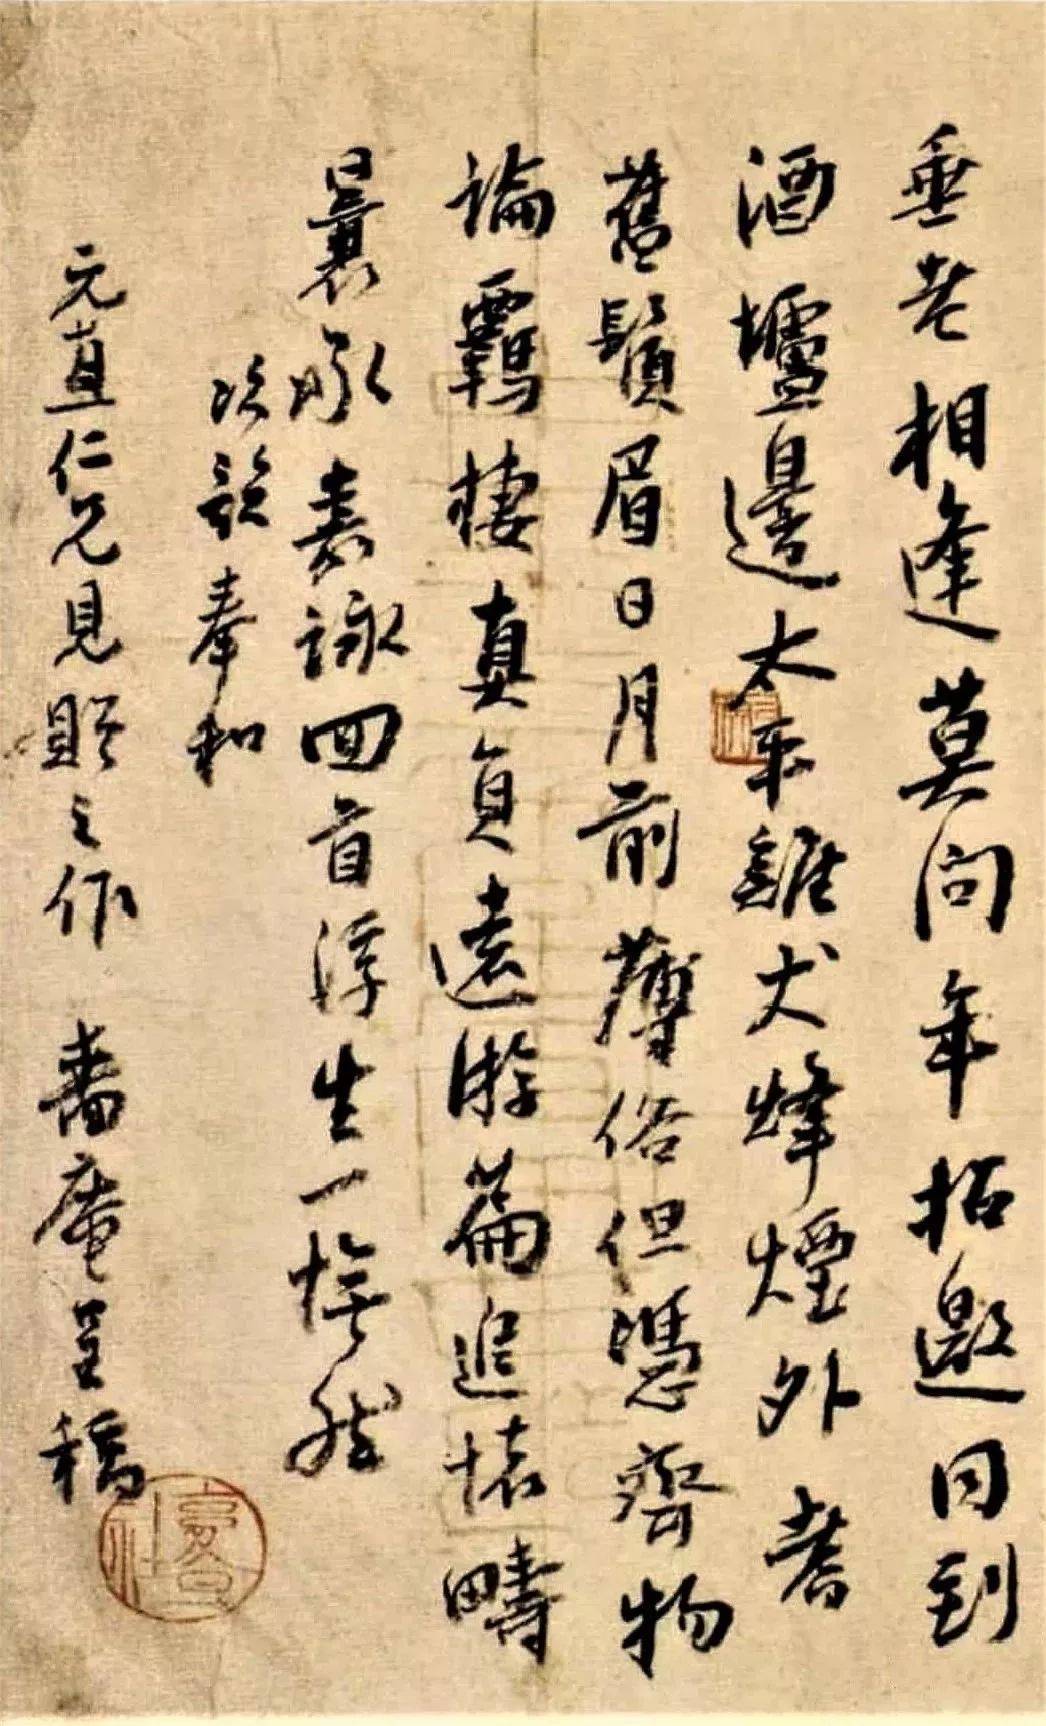 垂老相逢莫问年招邀同到
酒壚邊太平雞犬烽煙外耆
舊鬚眉日月前薄俗但憑齊物
論羈棲真負遠游篇追懷疇
曩承嘉詠回首浮生一憮然
次韵奉和
元直仁兄見貽之作 嗇庵呈稿